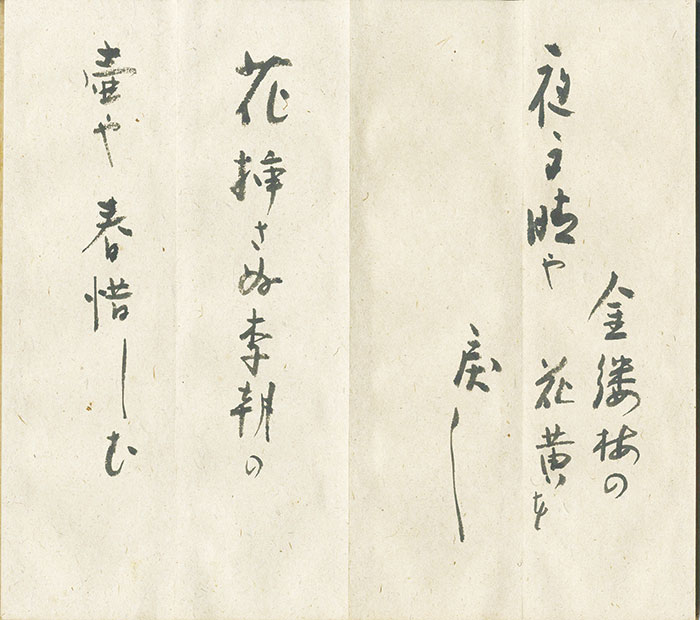 金縷梅の
晴や 花黄を
戻し
花挿さぬ李朝の
壷や 春惜しむ